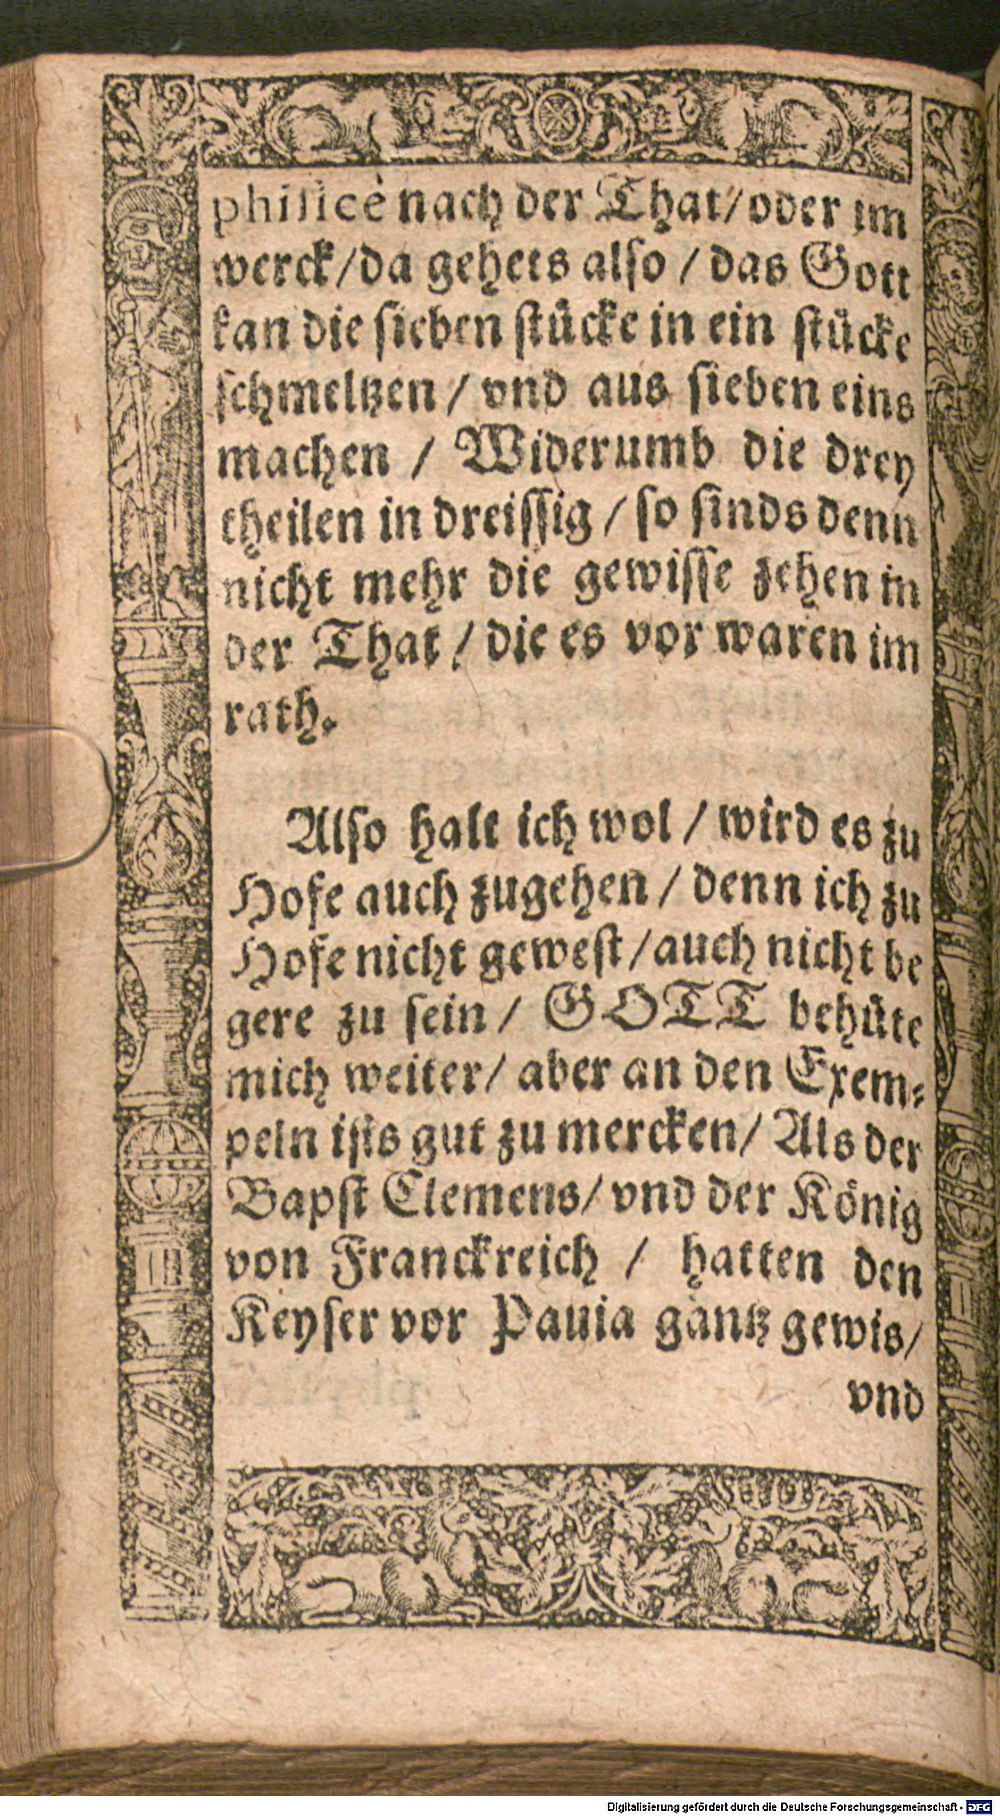 phisicè nach der That/oder im
werck/da gehets also / das Gott
kan die sieben stücke in ein stücke
schmeltzen / vnd aus sieben eins
machen / Widerumb die drey
theilen in dreissig / so sinds denn
nicht mehr die gewisse zehen in
der That / die es vor waren im
rath.
Also halt ich wol / wird es zu
Hofe auch zugehen / denn ich zu
Hofe nicht gewest/auch nicht be
gere zu sein / GOTT behüte
mich weiter/ aber an den Exem-
peln ists gut zu mercken/ Als der
Bapst Clemens/ vnd der König
von Franckreich / hatten den
Keyser vor Pauia gantz gewis/
vnd
Digitalisierung gefördert durch die Deutsche Forschungsgemeinschaft - DFG